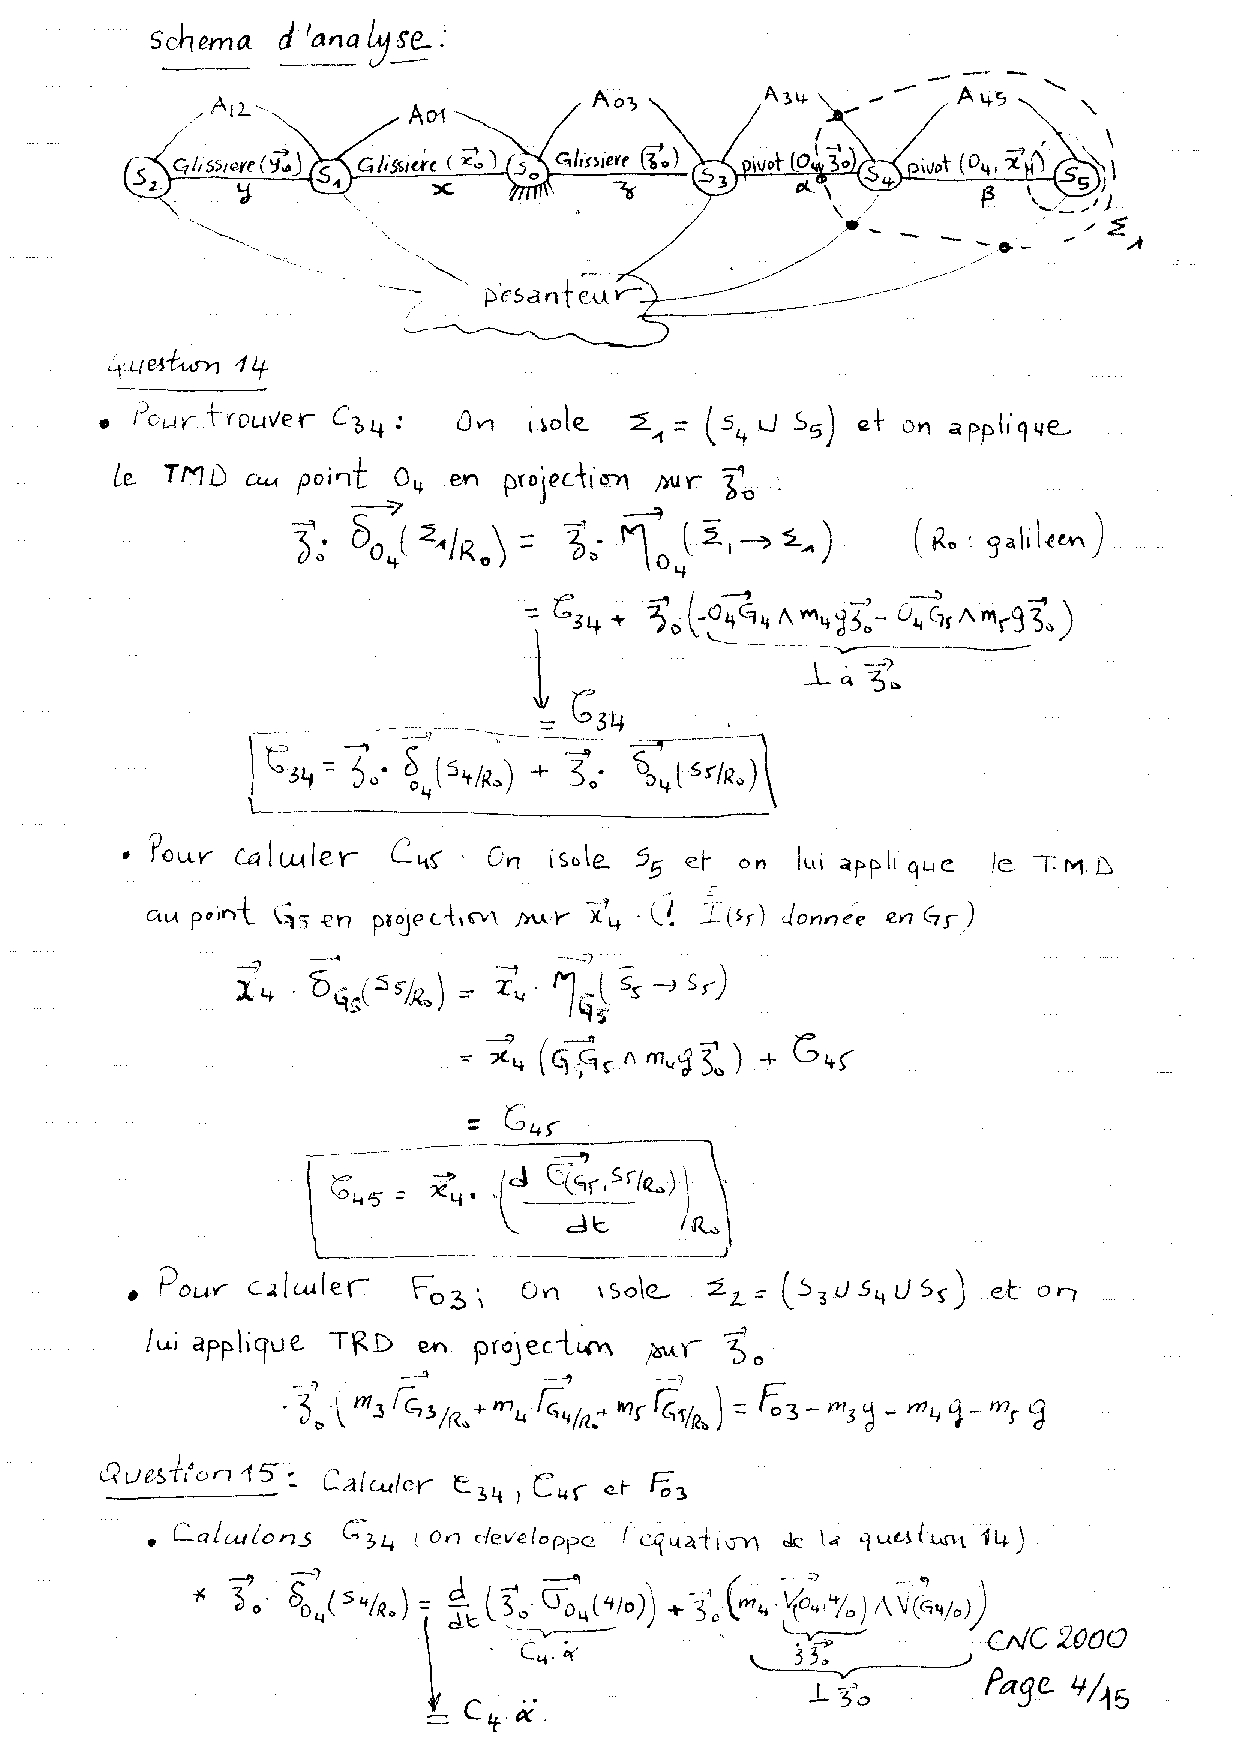 Schema d'analyse :
A12 A01 A03 A34 A45
S2 Glissière (y⃗0) S1 Glissière (x⃗0) S0 Glissière (z⃗0) S3 pivot (O4, z⃗0) S4 pivot (O4, x⃗4) S5
y x z α β
Σ1
pesanteur
Question 14
• Pour trouver C34 : On isole Σ1 = (S4 ∪ S5) et on applique
le TMD au point O4 en projection sur z⃗0 :
z⃗0 . δ⃗O4 (Σ1/R0) = z⃗0 . M⃗O4 (Σ̄1 → Σ1) (R0 : galileen)
= C34 + z⃗0 (-O4G4 ∧ m4 g z⃗0 - O4G5 ∧ m5 g z⃗0)
⊥ à z⃗0
= C34
C34 = z⃗0 . δ⃗O4 (S4/R0) + z⃗0 . δ⃗O4 (S5/R0)
• Pour calculer C45 . On isole S5 et on lui applique le T.M.D
au point G5 en projection sur x⃗4 . (! I(S5) donnée en G5)
x⃗4 . δ⃗G5 (S5/R0) = x⃗4 . M⃗G5 (S̄5 → S5)
= x⃗4 (G5G5 ∧ m4 g z⃗0) + C45
= C45
C45 = x⃗4 . (d σ⃗(G5, S5/R0) / dt)/R0
• Pour calculer F03 ; On isole Σ2 = (S3 ∪ S4 ∪ S5) et on
lui applique TRD en projection sur z⃗0
. z⃗0 (m3 Γ⃗G3/R0 + m4 Γ⃗G4/R0 + m5 Γ⃗G5/R0) = F03 - m3 g - m4 g - m5 g
Question 15 : Calculer C34, C45 et F03
• Calculons C34 (on développe l'equation de la question 14)
* z⃗0 . δ⃗O4 (S4/R0) = d/dt (z⃗0 . σ⃗O4 (4/0)) + z⃗0 (m4 . V⃗(O4, 4/0) ∧ V⃗(G4/0))
C4 . α̇ ż z⃗0
⊥ z⃗0
= C4 . α̈ .
CNC 2000
Page 4/15